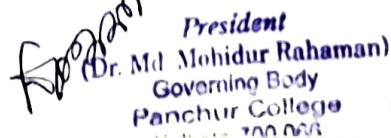 President
(Dr. Md Mohidur Rahaman)
Governing Body
Panchur College